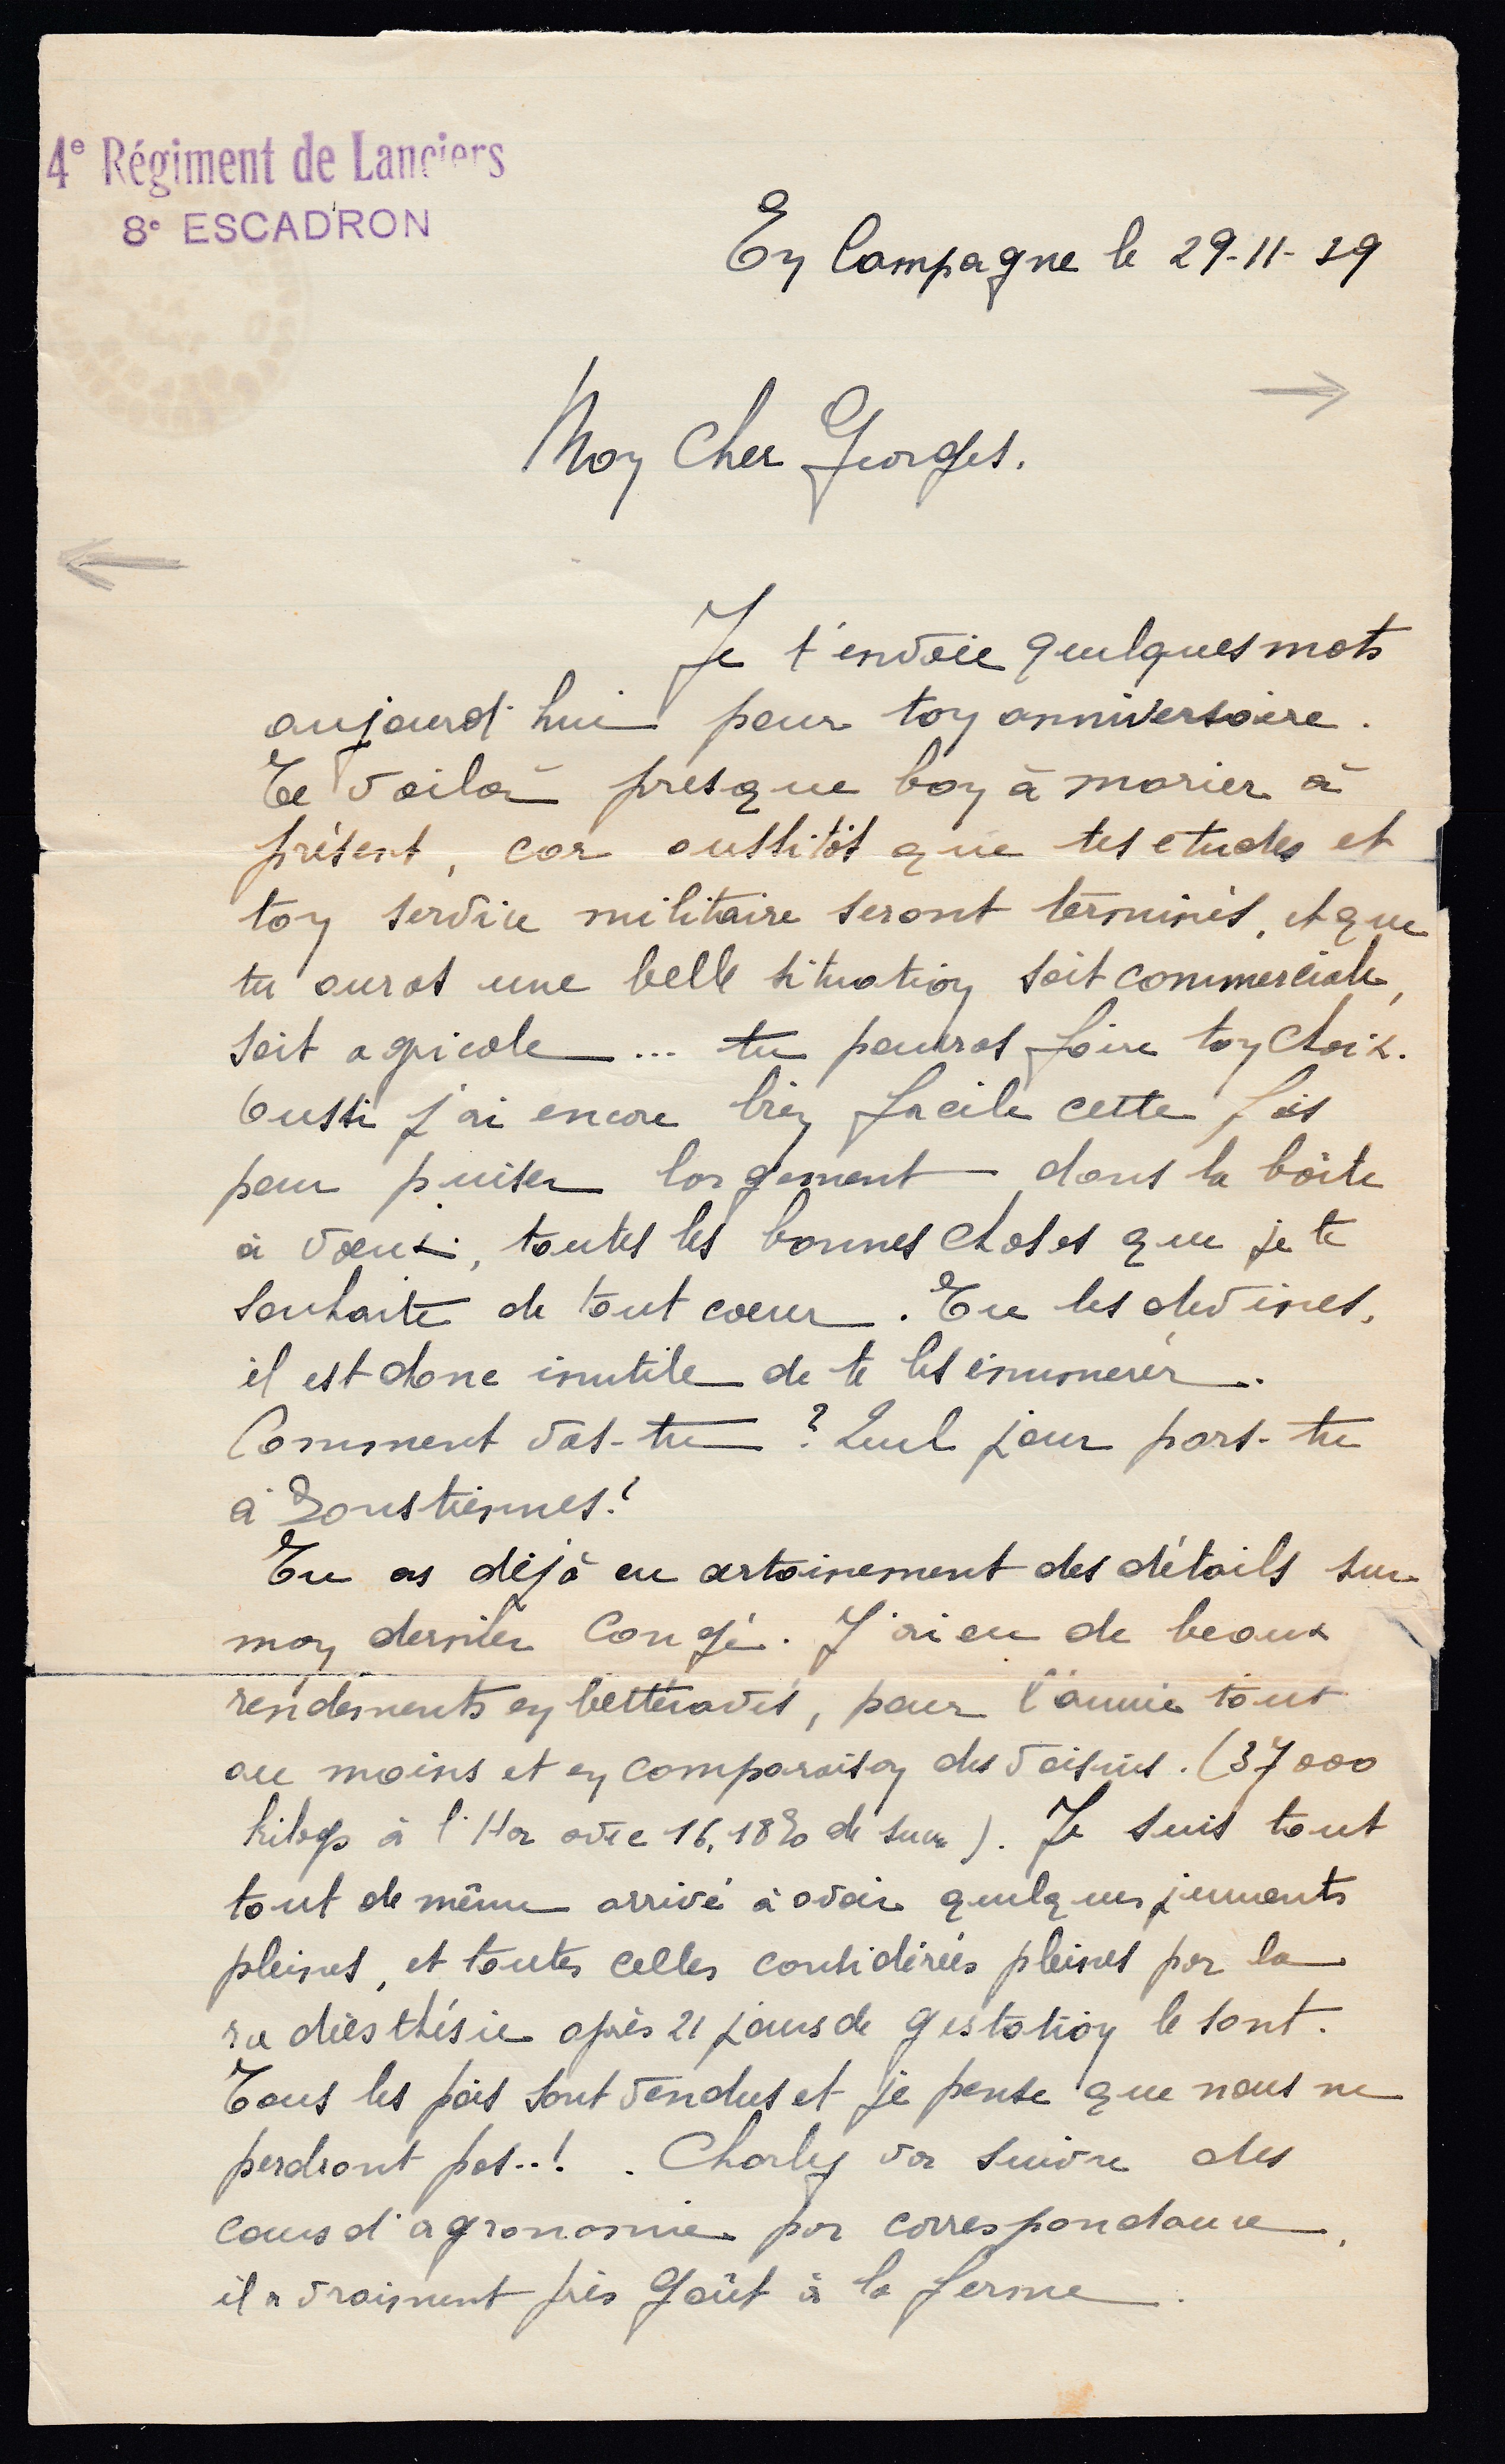 4e Régiment de Lanciers
8e ESCADRON
En Campagne le 29-11-39
Mon Cher Georges.
Je t'envoie quelques mots
aujourd'hui pour ton anniversaire.
Te voilà presque bon à marier à
présent, car aussitôt que tes etudes et
ton service militaire seront terminés, et que
tu auras une belle situation soit commerciale,
soit agricole ... tu pourras faire ton choix.
Aussi j'ai encore bien facile cette fois
pour puiser largement dans la boîte
à vœux, toutes les bonnes choses que je te
souhaite de tout coeur. Tu les devines,
il est donc inutile de te les énumerér.
Comment vas-tu ? Quel jour pars-tu
à Soustiennes?
Tu as déjà eu certainement des détails sur
mon dernier Congé. J'ai eu de beaux
rendements en betteraves, pour l'année tout
au moins et en comparaison des voisins. (37000
kilogs à l'Ha avec 16,18% de sucre). Je suis tout
tout de même arrivé à avoir quelques juments
pleines, et toutes celles considérées pleines par la
radiesthésie après 21 jours de gestation le sont.
Tous les pois sont vendus et je pense que nous ne
perdront pas..! . Charly va suivre des
cours d'agronomie par correspondance,
il a vraiment pris goût à la ferme.